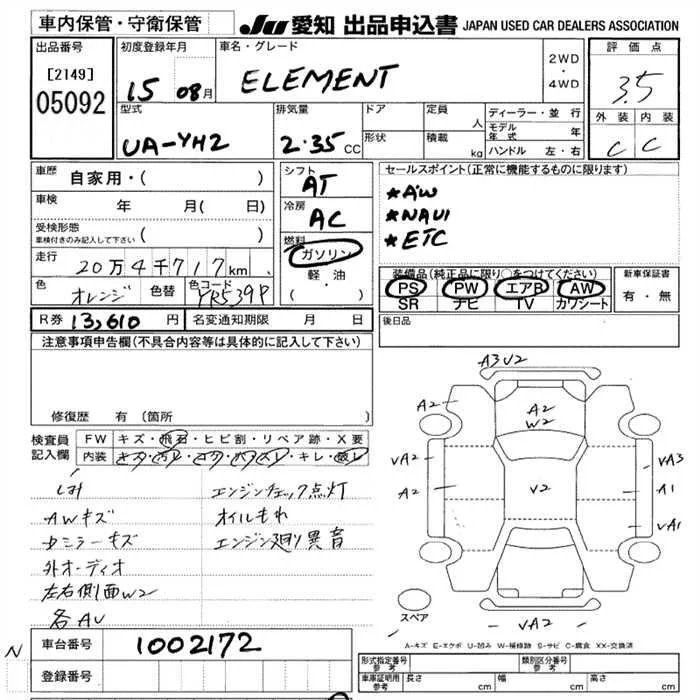 車内保管・守衛保管
JU 愛知 出品申込書 JAPAN USED CAR DEALERS ASSOCIATION
出品番号 初度登録年月 車名・グレード 評価点
[2149]
05092
15 08月 ELEMENT 2WD・4WD 3.5
型式 排気量 ドア 定員 人 ディーラー・並行 外装 内装
UA-YH2 2.35 CC 形状 積載 kg モデル年式 年 C C
ハンドル 左・右
車歴 自家用・( )
シフト AT
セールスポイント(正常に機能するものに限ります)
★AW
★NAVI
★ETC
車検 年 月( 日)
冷房 AC
受検形態 ( )
車検付きのみ記入して下さい
燃料 ガソリン 軽油 ( ・ )
走行 20万4千717km
色 オレンジ 色替 色コード YR539P
装備品(純正品に限り○をつけてください) 新車保証書
PS PW エアB AW 有・無
SR ナビ TV カワシート
R券 13,610 円 名変通知期限 月 日
後日品
注意事項申告欄(不具合内容等は具体的に記入して下さい)
修復歴 有(箇所 )
検査員記入欄 FW キズ・飛石・ヒビ割・リペア跡・X要
内装 キズ・汚レ・コゲ・ハズレ・キレ・破レ
しみ エンジンチェック点灯
AWキズ オイルもれ
ミラーキズ エンジン廻り異音
外オーディオ
左右側面W2
各AU
A3 V2
A2 A2 W2
VA2 VA3
A2 V2 A1
VA1
スペア VA2
A-キズ E-エクボ U-凹み W-補修跡 S-サビ C-腐食 XX-交換済
N 車台番号 1002172
登録番号
形式指定番号 参考 類別区分番号 参考
車庫証明用 参考 長さ cm 幅 cm 高さ cm